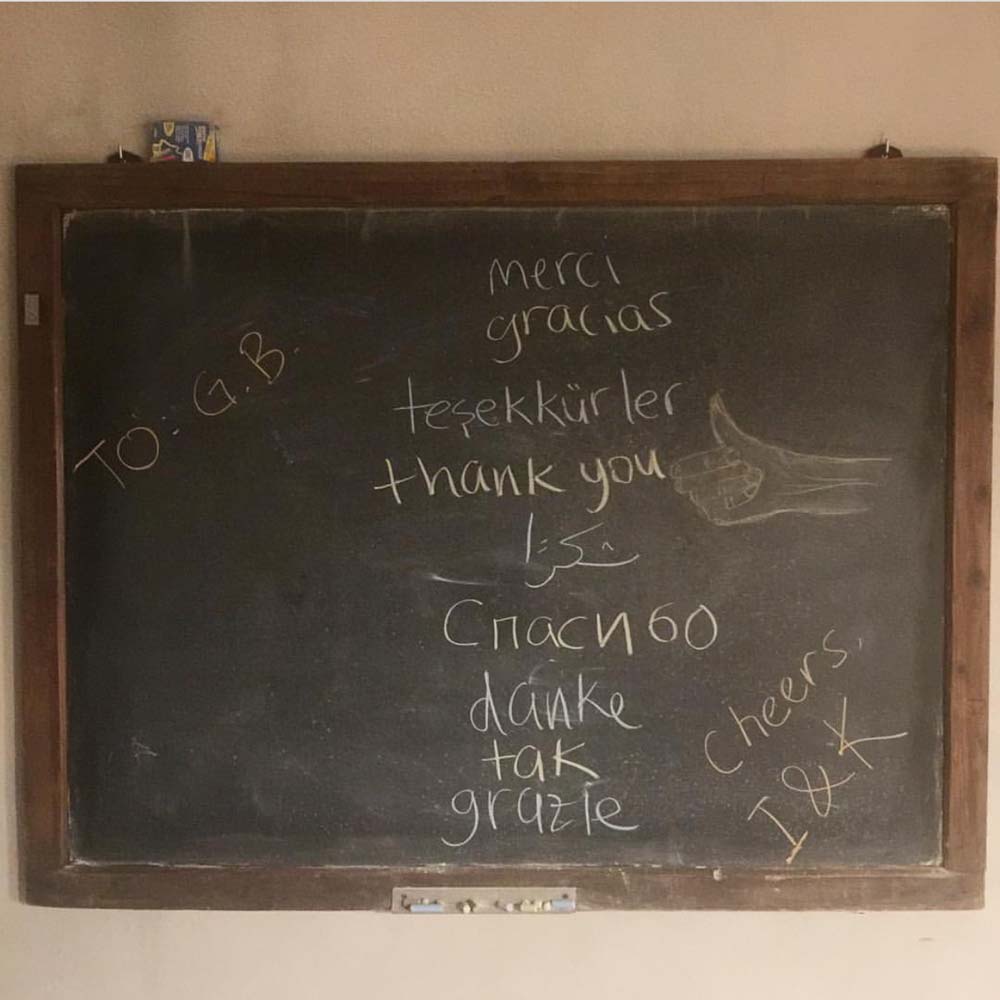 merci
gracias
TO: G.B.
teşekkürler
thank you
شكرًا
Спасибо
danke
tak
grazie
Cheers,
I & K